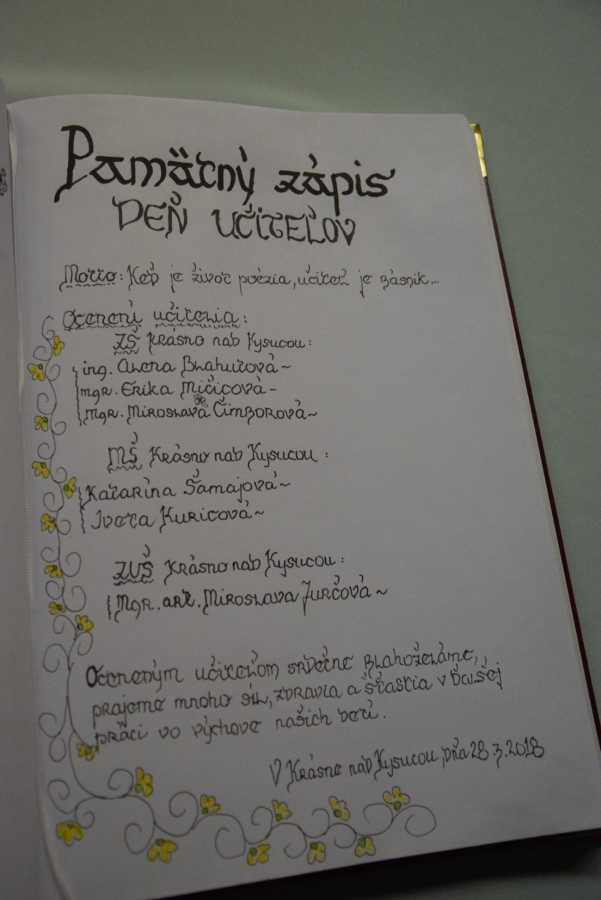 Pamätný zápis
DEŇ UČITEĽOV
Motto: Keď je život poézia, učiteľ je básnik...
Ocenení učitelia:
ZŠ Krásno nad Kysucou:
ing. Alena Blahutová ~
mgr. Erika Mičicová -
mgr. Miroslava Čimborová ~
MŠ Krásno nad Kysucou :
Katarína Šamajová ~
Iveta Kuricová ~
ZUŠ Krásno nad Kysucou :
Mgr. art. Miroslava Jurčová ~
Oceneným učiteľom srdečne blahoželáme,
prajeme mnoho síl, zdravia a šťastia v ďalšej
práci vo výchove našich detí.
V Krásne nad Kysucou, dňa 28.3.2018